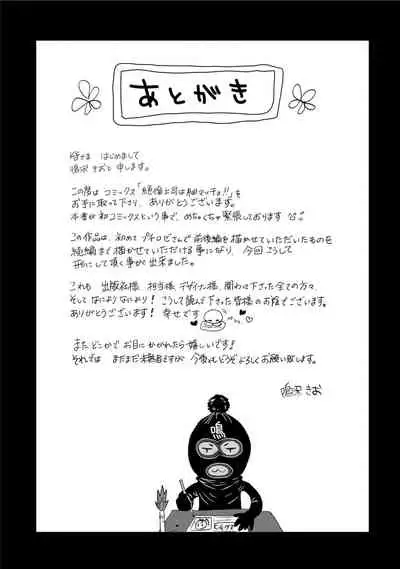 あとがき
皆さま はじめまして
鳴沢 きおと申します。
この度はコミックス「絶倫上司は細マッチョ!!」を
お手に取って下さり、ありがとうございます。
本書が初コミックスという事で、めちゃくちゃ緊張しております
この作品は、初めて プチロゼさんで前後編を描かせていただいたものを
続編まで描かせていただける事になり、今回こうして
形にして頂く事が出来ました。
これも 出版社様、担当様、デザイナー様、関わって下さった全ての方々、
そして なにより なにより! こうして読んで下さった皆様のお陰でございます。
ありがとうございます! 幸せです
また、どこかで お目にかかれたら嬉しいです!
それでは まだまだ未熟者ですが 今後ともどうぞよろしくお願い致します。
鳴沢 きお
鳴